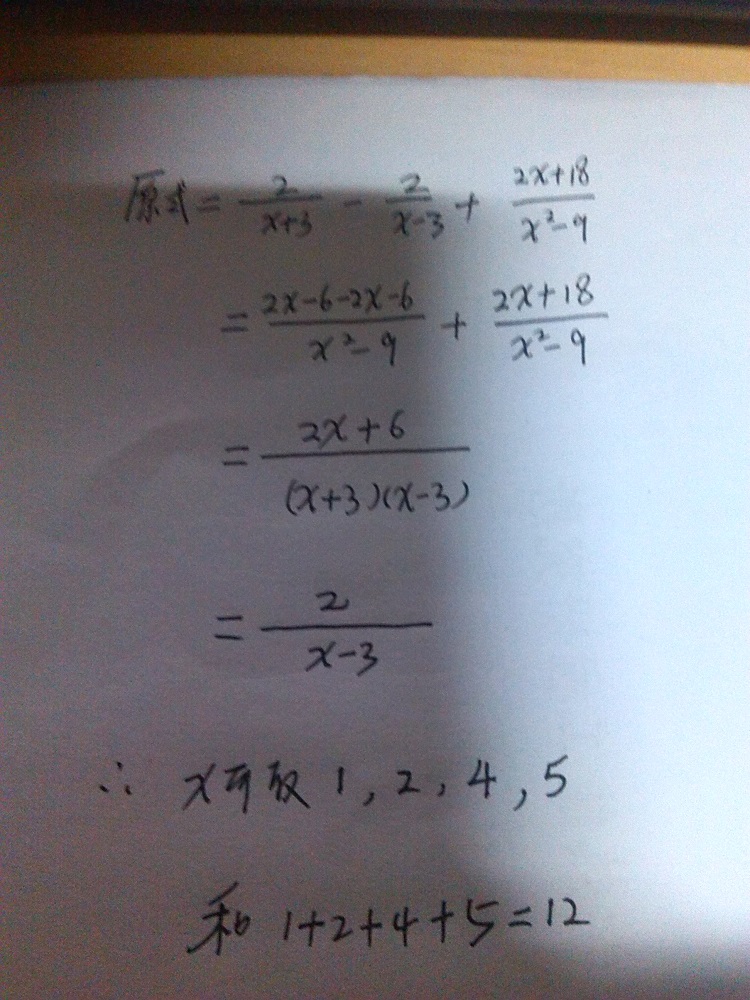 原式 = 2/(x+3) - 2/(x-3) + (2x+18)/(x²-9)
= (2x-6-2x-6)/(x²-9) + (2x+18)/(x²-9)
= (2x+6)/((x+3)(x-3))
= 2/(x-3)
∴ x可取 1, 2, 4, 5
和 1+2+4+5=12